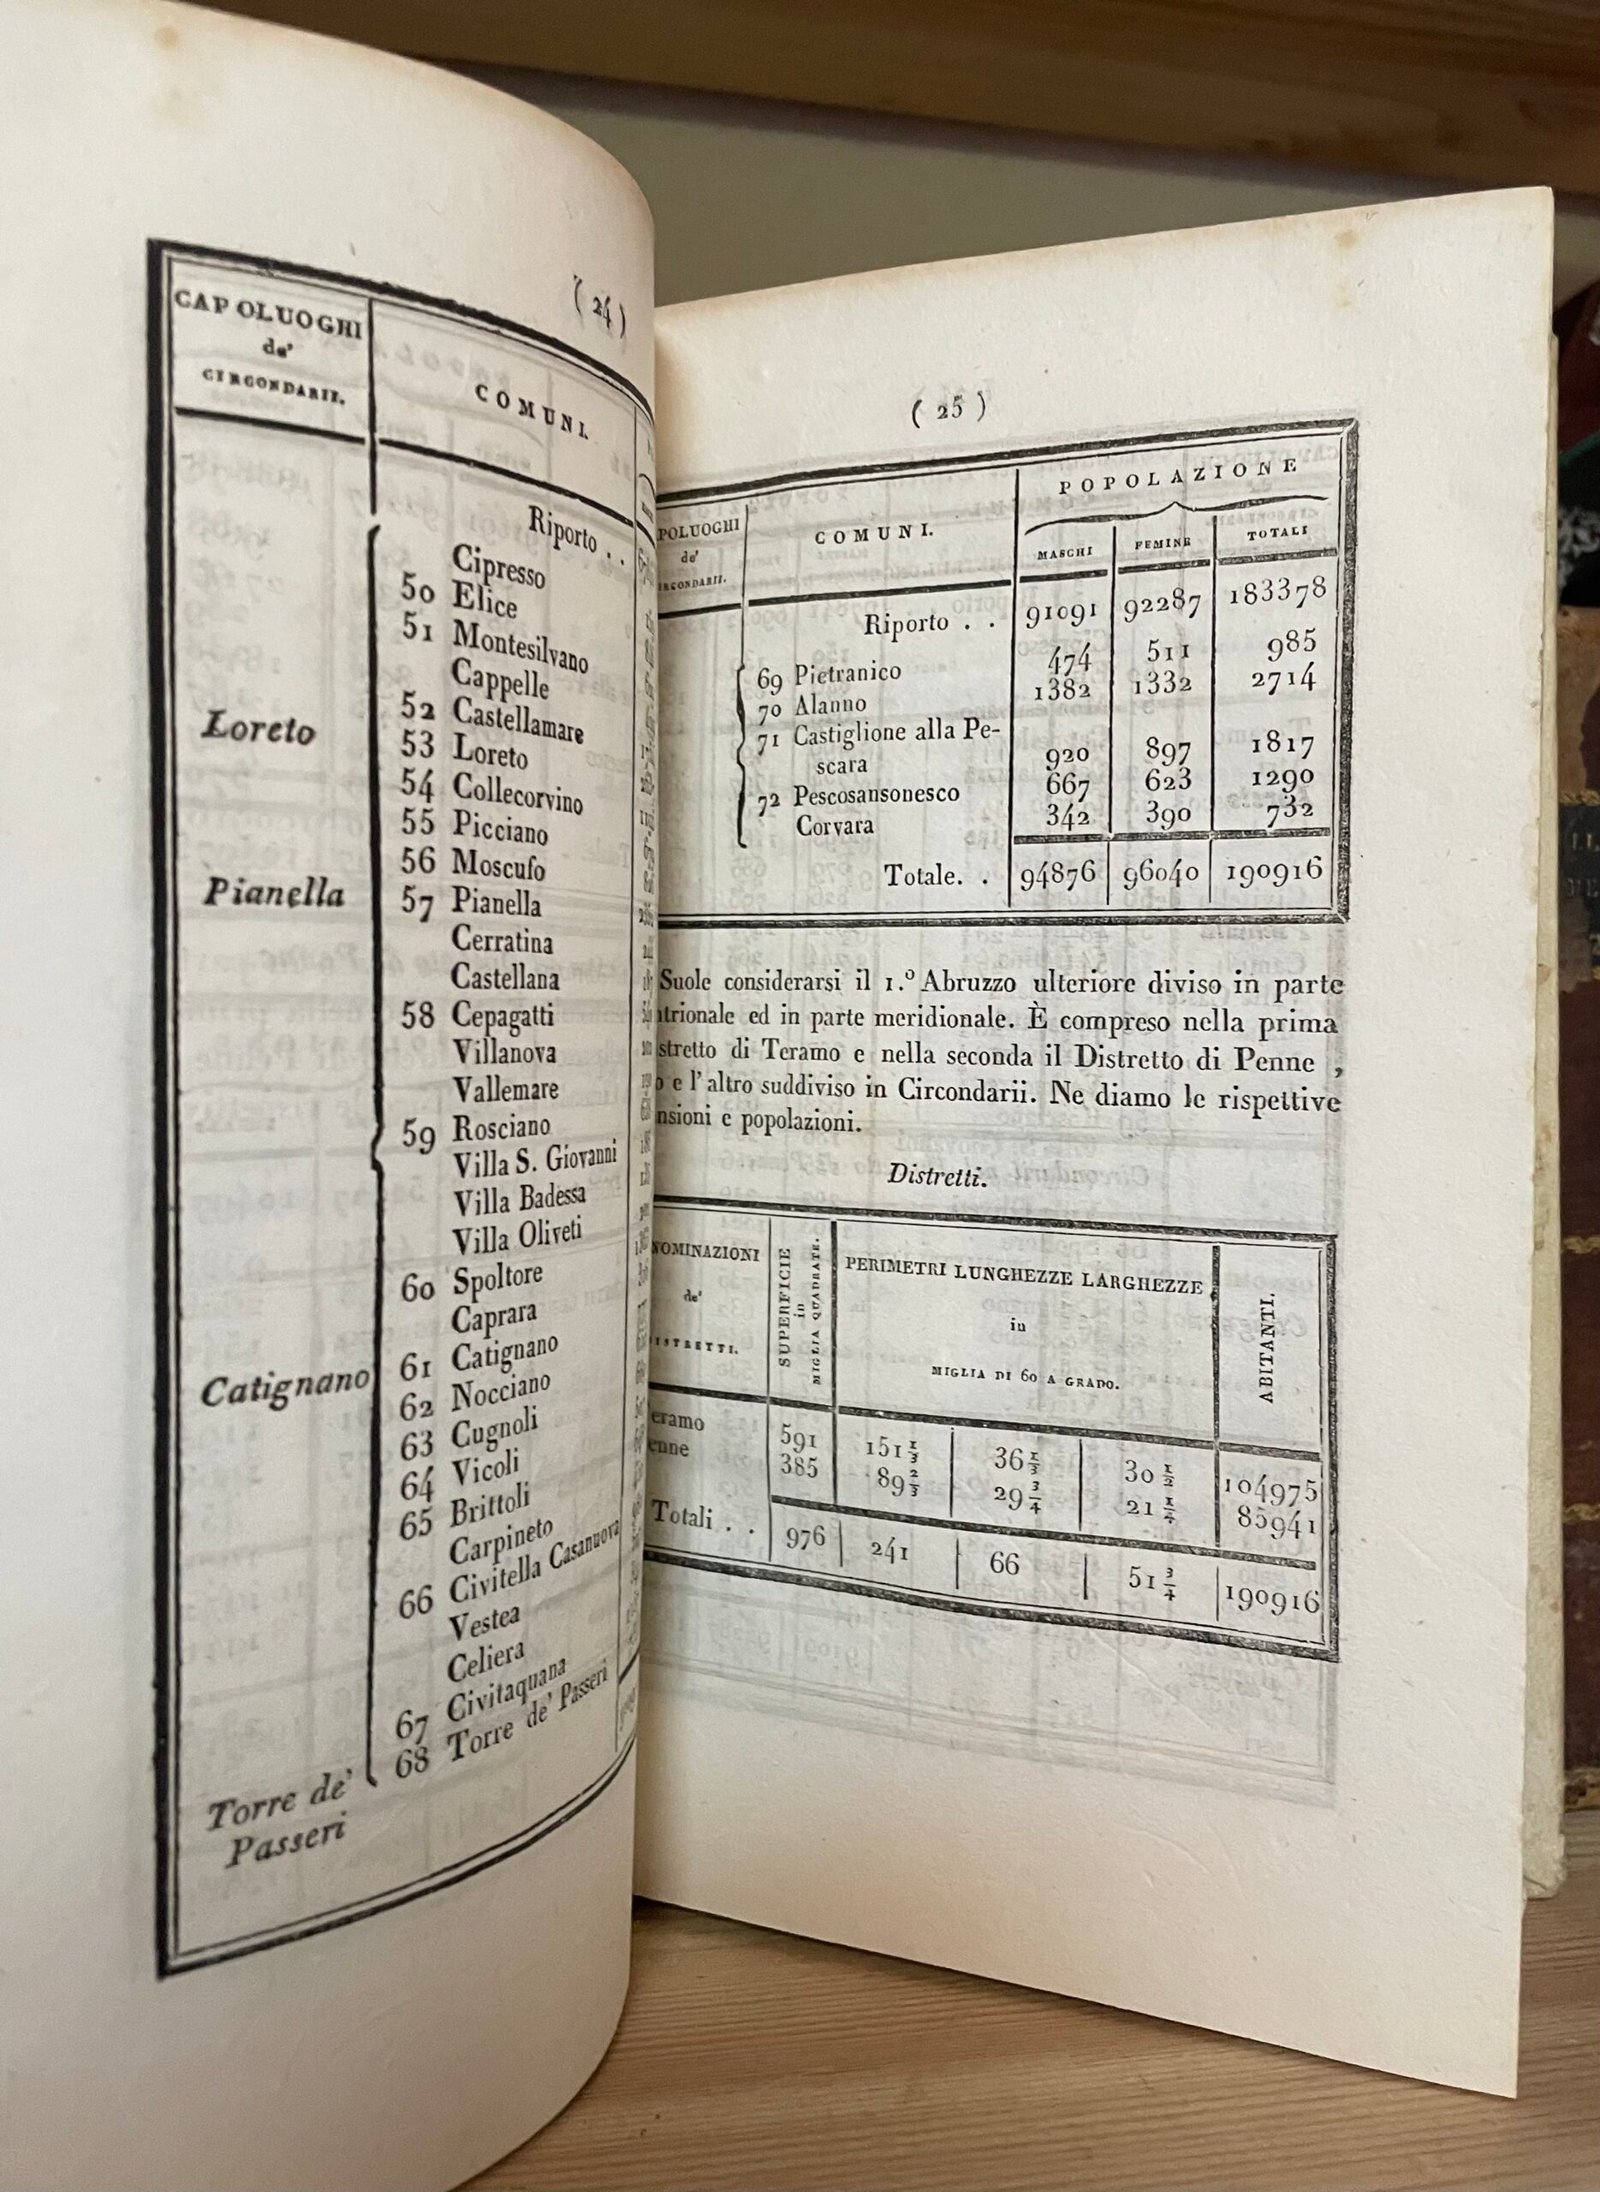 ( 24 )
CAPOLUOGHI
de'
CIRCONDARII.
COMUNI.
Riporto . .
Cipresso
50 Elice
51 Montesilvano
Cappelle
52 Castellamare
Loreto
53 Loreto
54 Collecorvino
55 Picciano
56 Moscufo
Pianella
57 Pianella
Cerratina
Castellana
58 Cepagatti
Villanova
Vallemare
59 Rosciano
Villa S. Giovanni
Villa Badessa
Villa Oliveti
60 Spoltore
Caprara
Catignano
61 Catignano
62 Nocciano
63 Cugnoli
64 Vicoli
65 Brittoli
Carpineto
66 Civitella Casanuova
Vestea
Celiera
67 Civitaquana
68 Torre de' Passeri
Torre de'
Passeri
( 25 )
POLUOGHI
de'
IRCONDARII.
COMUNI.
POPOLAZIONE
MASCHI FEMINE TOTALI
Riporto . . 91091 92287 183378
69 Pietranico 474 511 985
70 Alanno 1382 1332 2714
71 Castiglione alla Pe-
scara 920 897 1817
72 Pescosansonesco 667 623 1290
Corvara 342 390 732
Totale. . 94876 96040 190916
Suole considerarsi il 1.º Abruzzo ulteriore diviso in parte
ntrionale ed in parte meridionale. È compreso nella prima
stretto di Teramo e nella seconda il Distretto di Penne ,
o e l'altro suddiviso in Circondarii. Ne diamo le rispettive
nsioni e popolazioni.
Distretti.
NOMINAZIONI
de'
ISTRETTI.
SUPERFICIE
in
MIGLIA QUADRATE.
PERIMETRI LUNGHEZZE LARGHEZZE
in
MIGLIA DI 60 A GRADO.
ABITANTI.
eramo 591 151 1/3 36 1/3 30 1/2 104975
enne 385 89 2/3 29 3/4 21 1/4 85941
Totali . . 976 241 66 51 3/4 190916